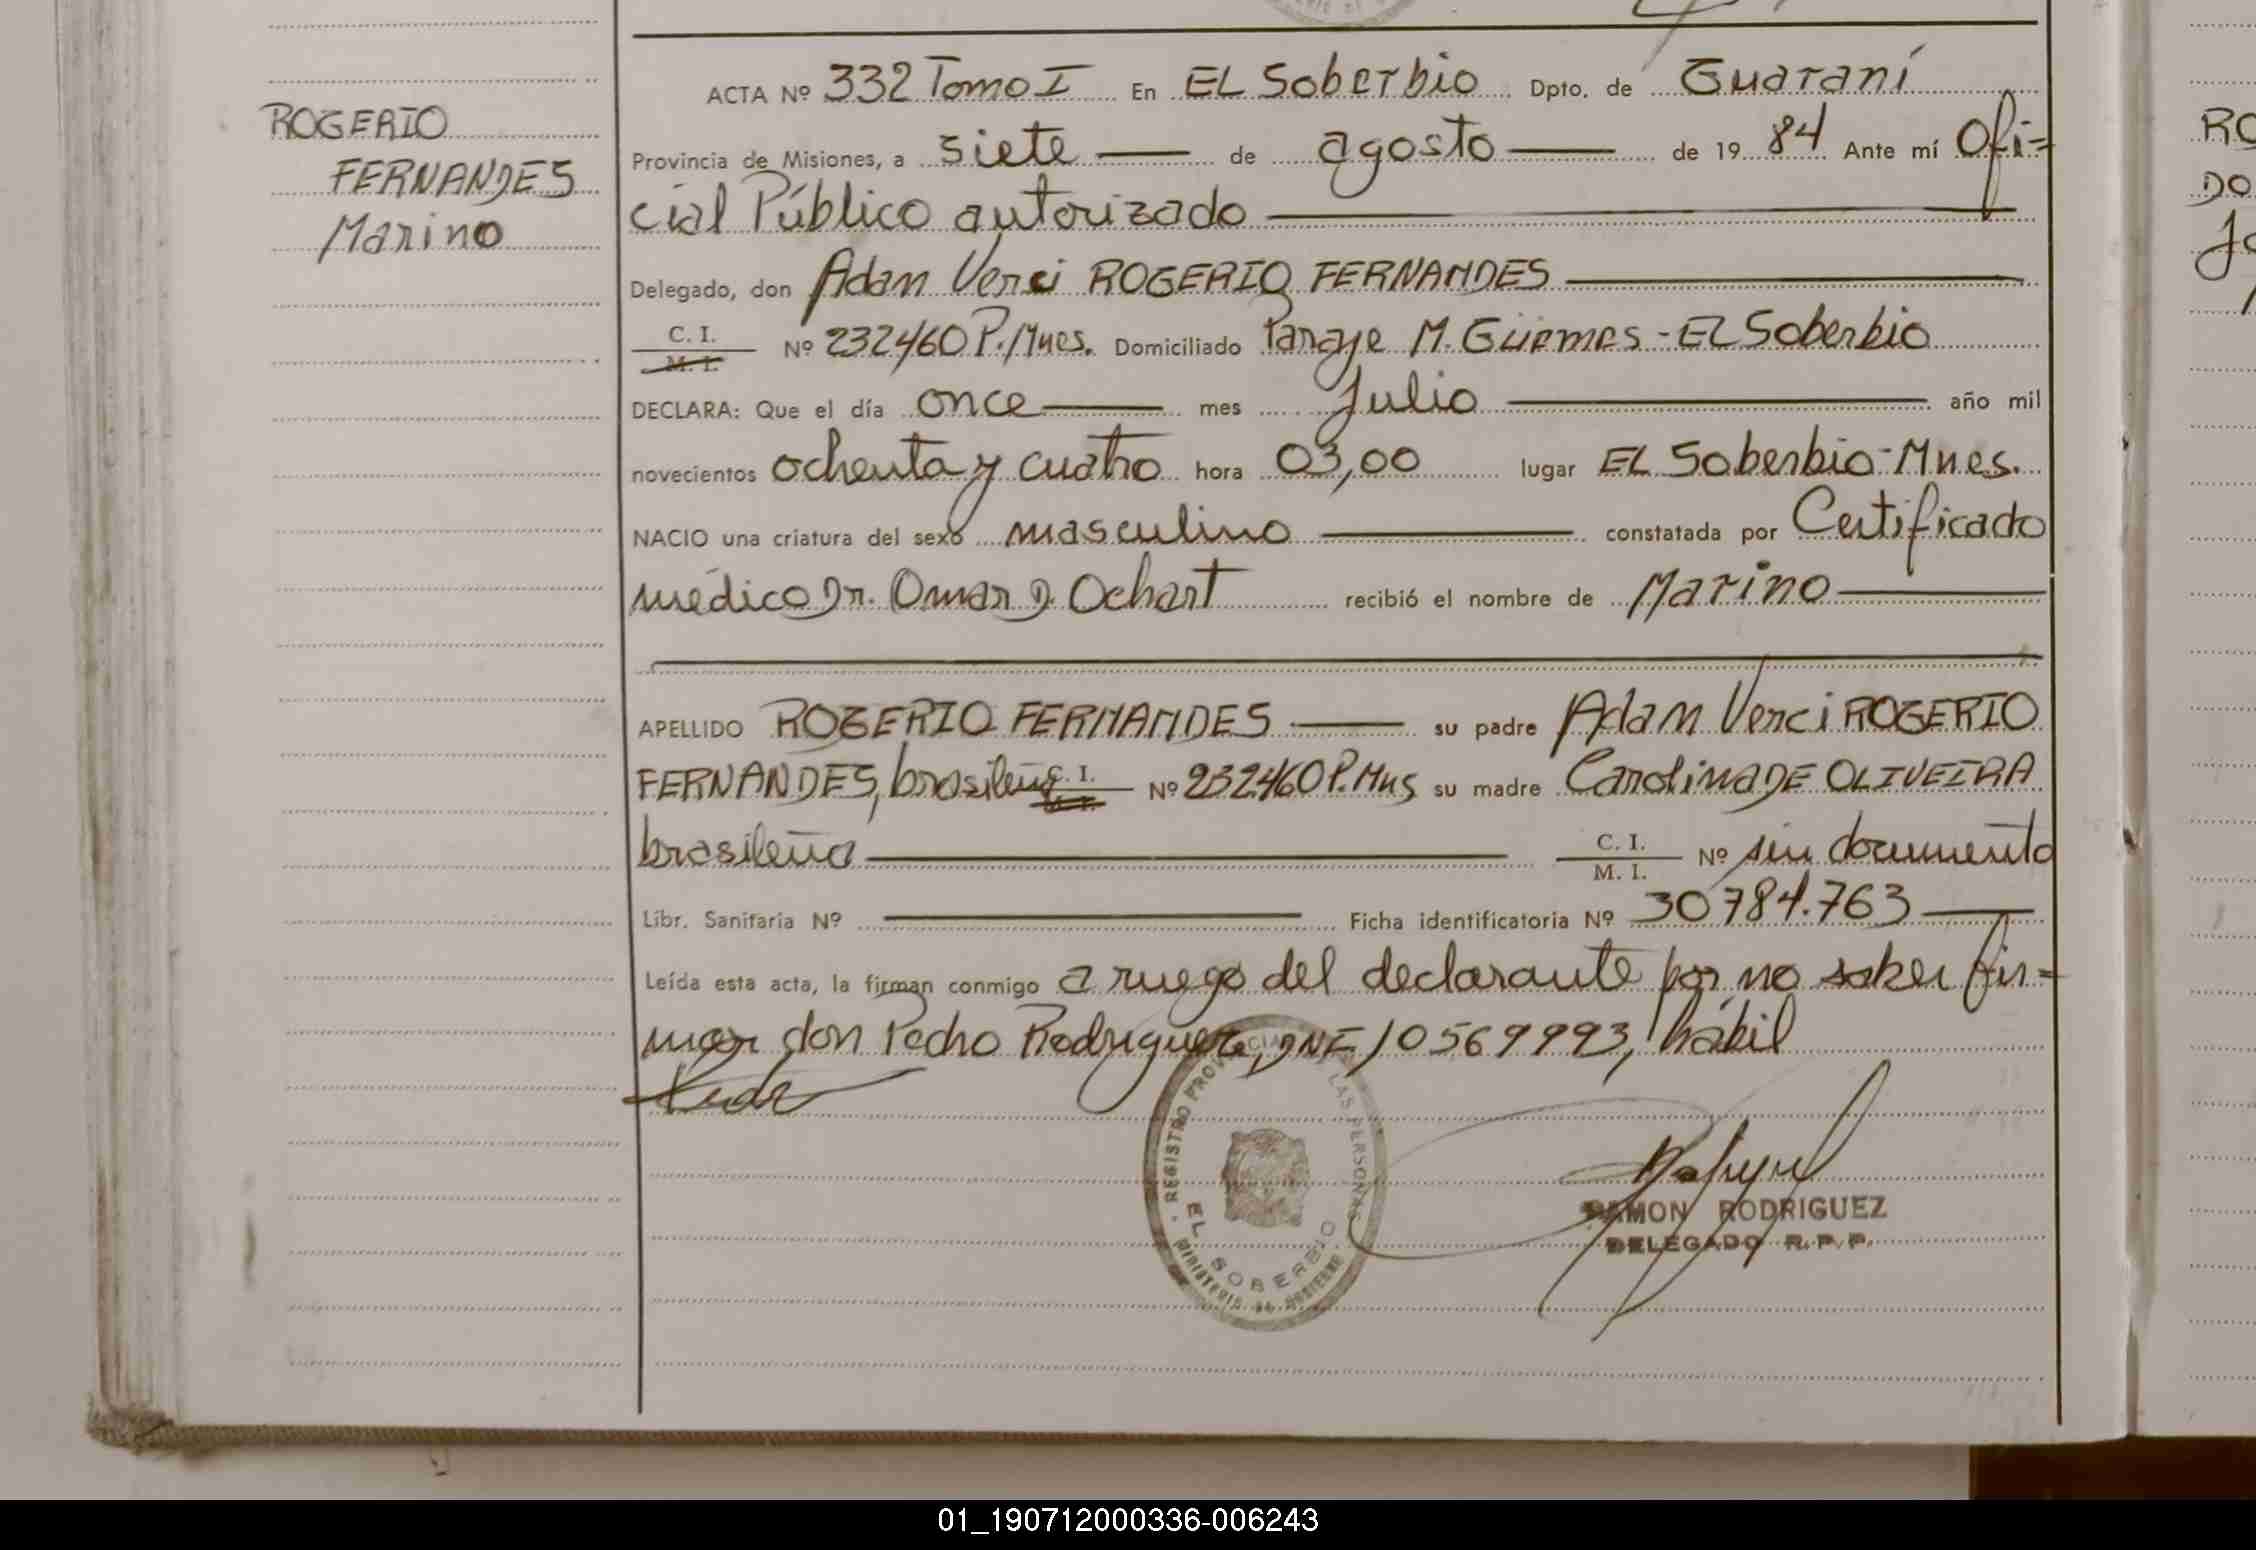 ACTA Nº 332 Tomo I En EL Soberbio Dpto. de Guaraní
ROGERIO
FERNANDES
Marino
Provincia de Misiones, a siete de agosto de 1984 Ante mí Ofi=
cial Público autorizado
Delegado, don Adan Verci ROGERIO FERNANDES
C. I.
M. I.
Nº 232460 P. Mnes. Domiciliado Paraje M. Güemes - EL Soberbio
DECLARA: Que el día once mes Julio año mil
novecientos ochenta y cuatro hora 03,00 lugar EL Soberbio - Mnes.
NACIO una criatura del sexo masculino constatada por Certificado
médico Dr. Omar D. Ochart recibió el nombre de Marino
APELLIDO ROGERIO FERNANDES su padre Adam Verci ROGERIO
FERNANDES, brasileño C. I. M. I. Nº 232.460 P. Mns su madre Carolina DE OLIVEIRA
brasileña C. I. M. I. Nº sin documento
Libr. Sanitaria Nº Ficha identificatoria Nº 30784.763
Leída esta acta, la firman conmigo a ruego del declarante por no saber fir=
mar don Pedro Rodriguez, DNI 10569993, hábil
REGISTRO PROVINCIAL DE LAS PERSONAS
EL SOBERBIO
MINISTERIO DE GOBIERNO
RAMON RODRIGUEZ
DELEGADO R.P.P.
RO
DO
01_190712000336-006243